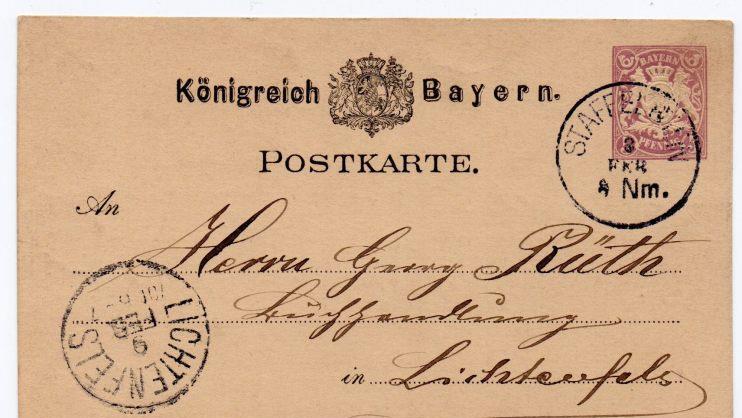 Königreich Bayern.
BAYERN
PFENNIG
STAFFELSTEIN
8
FEB
8 Nm.
POSTKARTE.
An
Herrn Georg Rüth
Buchhandlung
in Lichtenfels
LICHTENFELS
9
FEB